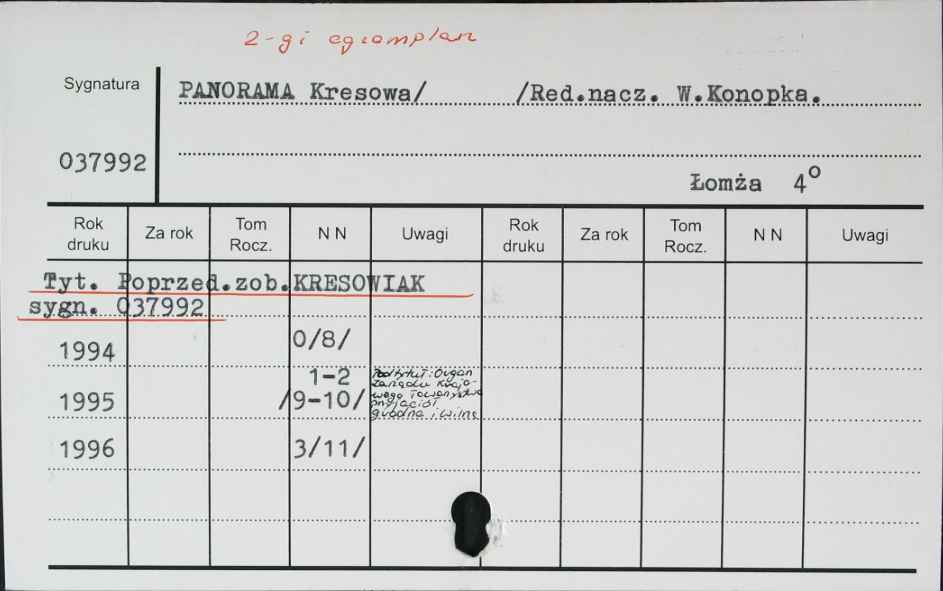 2-gi egzemplarz
Sygnatura
PANORAMA Kresowa/ /Red.nacz. W.Konopka.
037992
Łomża 4°
Rok druku Za rok Tom Rocz. N N Uwagi Rok druku Za rok Tom Rocz. N N Uwagi
Tyt. Poprzed.zob.KRESOWIAK
sygn. 037992
1994 0/8/
1-2
1995 /9-10/
Podtytuł: Organ
Zarządu Krajo-
wego Towarzystwa
Przyjaciół
Grodna i Wilna
1996 3/11/